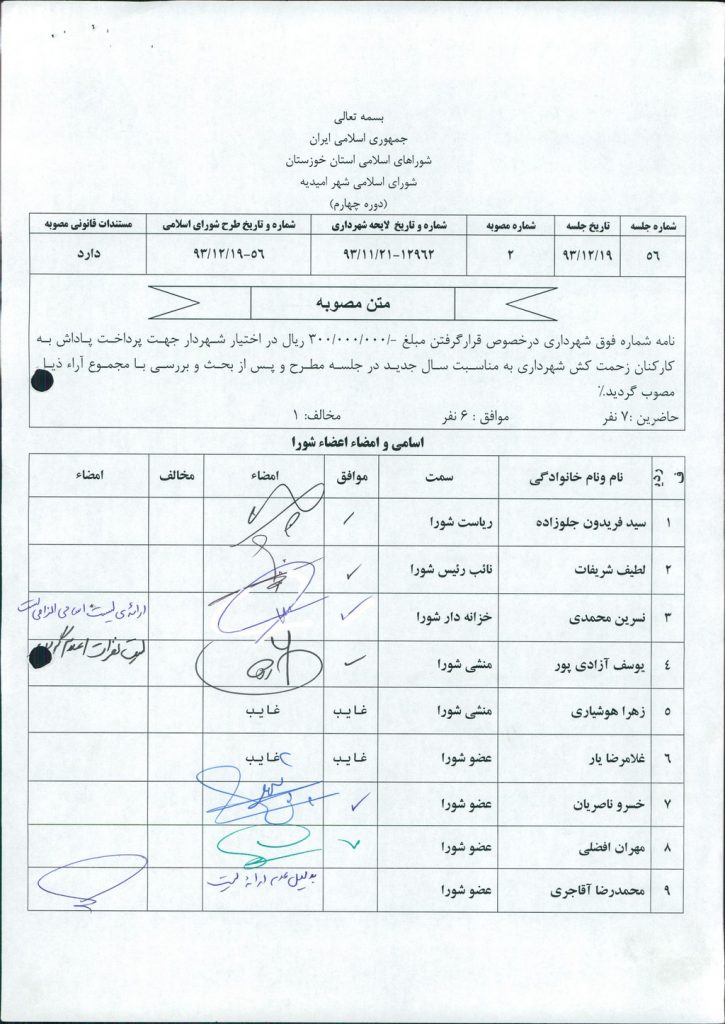 بسمه تعالی
جمهوری اسلامی ایران
شوراهای اسلامی استان خوزستان
شورای اسلامی شهر امیدیه
(دوره چهارم)
شماره جلسه تاریخ جلسه شماره مصوبه شماره و تاریخ لایحه شهرداری شماره و تاریخ طرح شورای اسلامی مستندات قانونی مصوبه
۵۶ ۹۳/۱۲/۱۹ ۲ ۹۳/۱۱/۲۱-۱۲۹۶۲ ۹۳/۱۲/۱۹-۵۶ دارد
متن مصوبه
نامه شماره فوق شهرداری درخصوص قرارگرفتن مبلغ -/۳۰۰/۰۰۰/۰۰۰ ریال در اختیار شهردار جهت پرداخت پاداش به
کارکنان زحمت کش شهرداری به مناسبت سال جدید در جلسه مطرح و پس از بحث و بررسی با مجموع آراء ذیل
مصوب گردید.٪
حاضرین :۷ نفر موافق : ۶ نفر مخالف: ۱
اسامی و امضاء اعضاء شورا
ردیف نام ونام خانوادگی سمت موافق امضاء مخالف امضاء
۱ سید فریدون جلوزاده ریاست شورا
۲ لطیف شریفات نائب رئیس شورا
۳ نسرین محمدی خزانه دار شورا ارائه‌ی لیست اسامی الزامی است
۴ یوسف آزادی پور منشی شورا
۵ زهرا هوشیاری منشی شورا غایب غایب
۶ غلامرضا یار عضو شورا غایب غایب
۷ خسرو ناصریان عضو شورا
۸ مهران افضلی عضو شورا
۹ محمدرضا آقاجری عضو شورا بدلیل عدم ارائه لیست